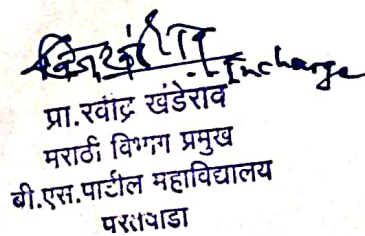 Incharge
प्रा.रवींद्र खंडेराव
मराठी विभाग प्रमुख
बी.एस.पाटील महाविद्यालय
परतवाडा